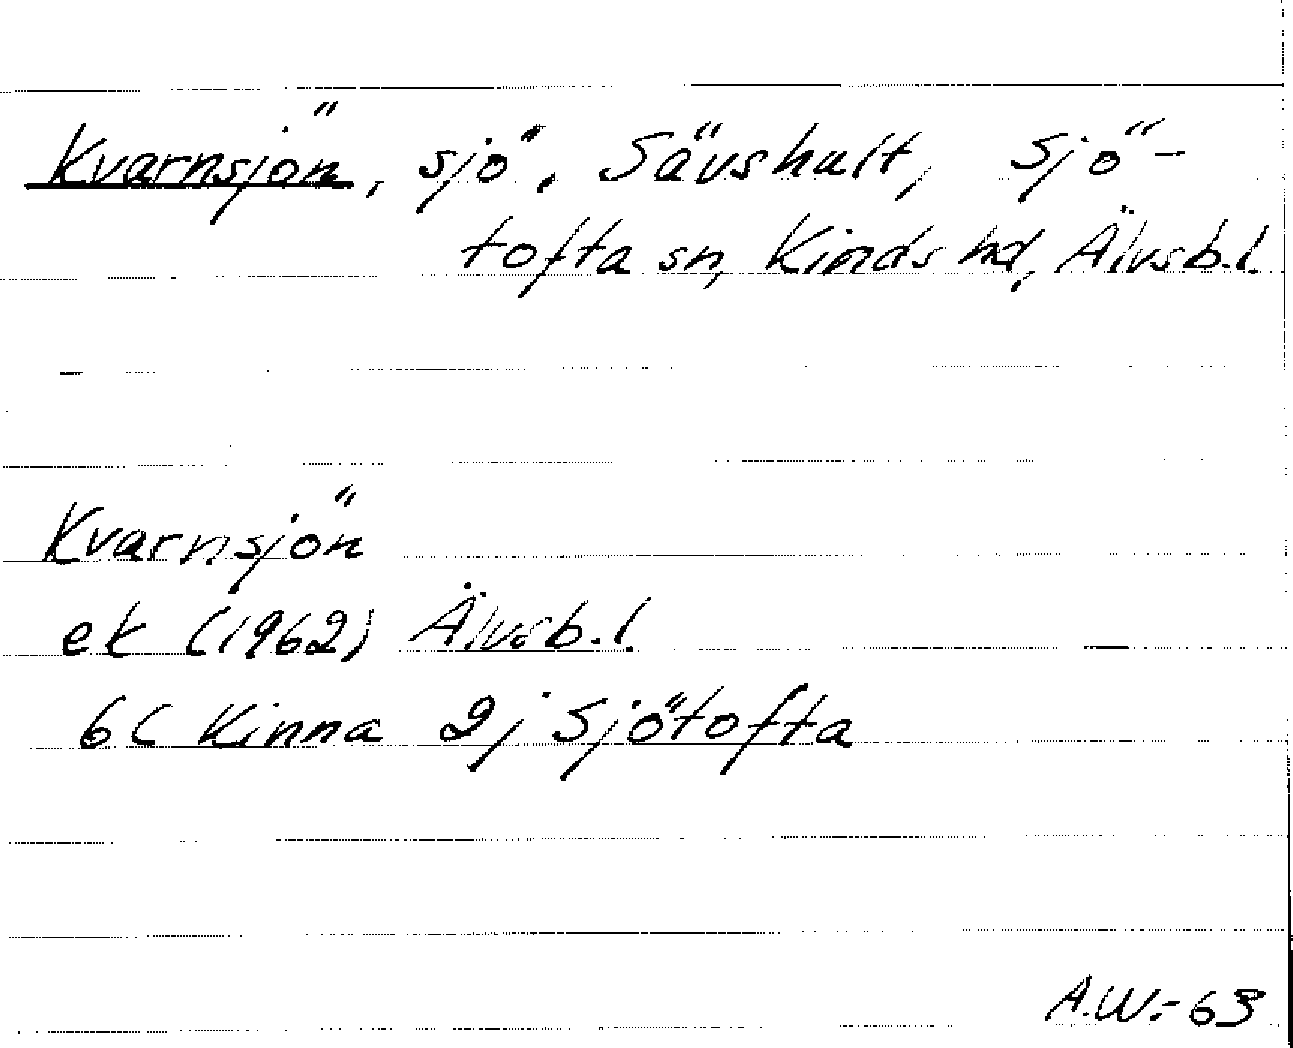 Kvarnsjön, sjö, Sävshult, Sjö-
tofta sn, Kinds hd, Älvsb.l.
Kvarnsjön
ek (1962) Älvsb.l.
6C Kinna 2j Sjötofta
A.W.-63